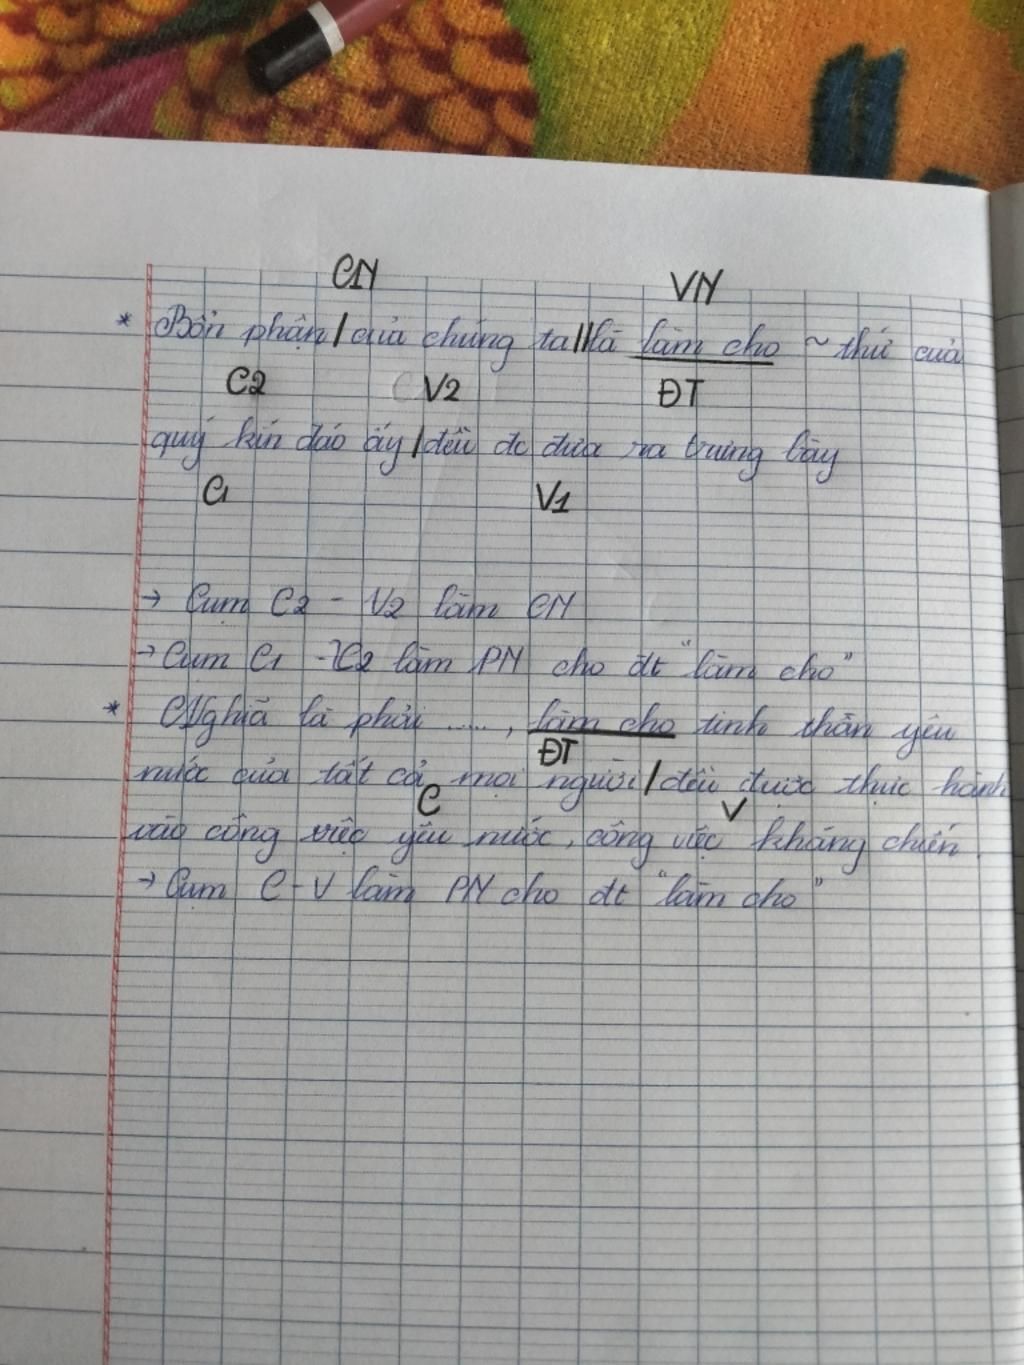 CN VN
* Bổn phận / của chúng ta // là làm cho ~ thứ của
C2 V2 ĐT
quý kín đáo ấy / đều đc đưa ra trưng bày
C1 V1
→ Cụm C2 - V2 làm CN
→ Cụm C1 - C2 làm PN cho đt "làm cho"
* Nghĩa là phải ....., làm cho tinh thần yêu
ĐT
nước của tất cả mọi người / đều được thực hành
C V
vào công việc yêu nước, công việc kháng chiến.
→ Cụm C - V làm PN cho đt "làm cho"